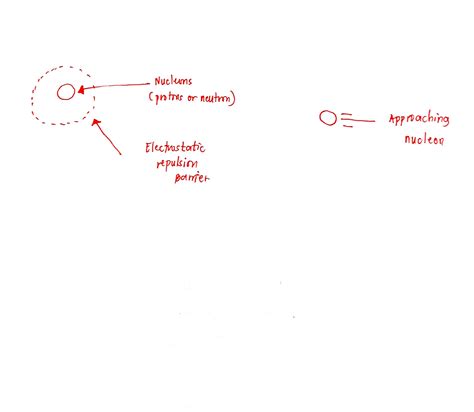 Nucleons
(protons or neutron)
Electrostatic
repulsion
barrier
Approaching
nucleon